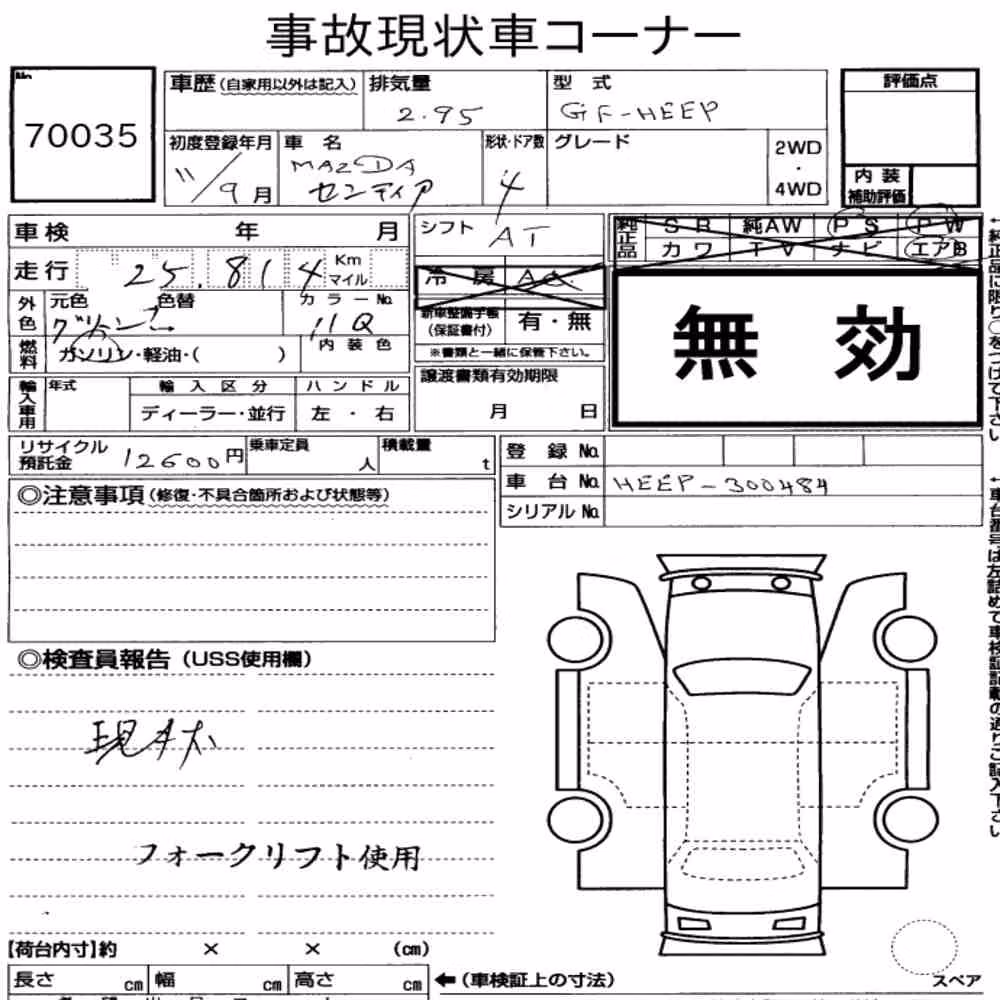 事故現状車コーナー
No.
70035
車歴(自家用以外は記入) 排気量 型式
2.95 GF-HEEP
評価点
初度登録年月 車名 形状・ドア数 グレード 2WD・4WD
11/9月 MAZDA センティア 4
内装補助評価
車検 年 月
シフト AT
純正品 SR 純AW PS PW
カワ TV ナビ エアB
走行 25.814 Km マイル
冷房 AC
外色 元色 色替 カラーNo.
グリーン 11Q
新車整備手帳(保証書付) 有・無
無効
燃料 ガソリン・軽油・( ) 内装色
※書類と一緒に保管下さい。
輸入車用 年式 輸入区分 ハンドル
ディーラー・並行 左・右
譲渡書類有効期限
月 日
←純正品に限り○をつけて下さい
リサイクル預託金 12600円 乗車定員 人 積載量 t
登録No.
車台No. HEEP-300484
シリアルNo.
←車台番号は左詰めで車検証記載の通りご記入下さい
◎注意事項(修復・不具合箇所および状態等)
◎検査員報告(USS使用欄)
現状
フォークリフト使用
【荷台内寸】約 × × (cm)
長さ cm 幅 cm 高さ cm ←(車検証上の寸法)
スペア